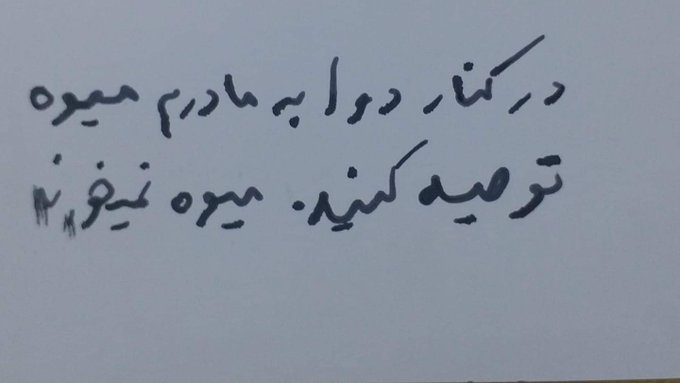 در کنار دوا به مادرم میوه
توصیه کنید. میوه نمیخوره